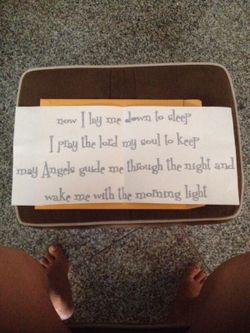 now I lay me down to sleep
I pray the lord my soul to keep
may Angels guide me through the night and
wake me with the morning light